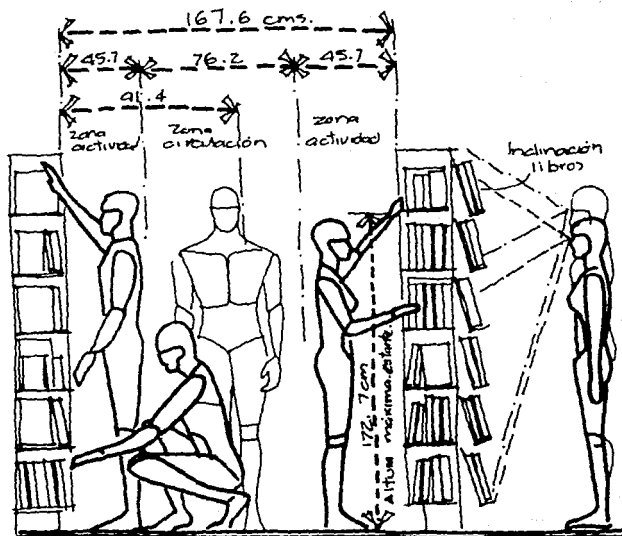 167.6 cms.
45.7
76.2
45.7
91.4
zona
actividad
zona
circulación
zona
actividad
Inclinación
libros
172.7cm
Altura máxima estante.